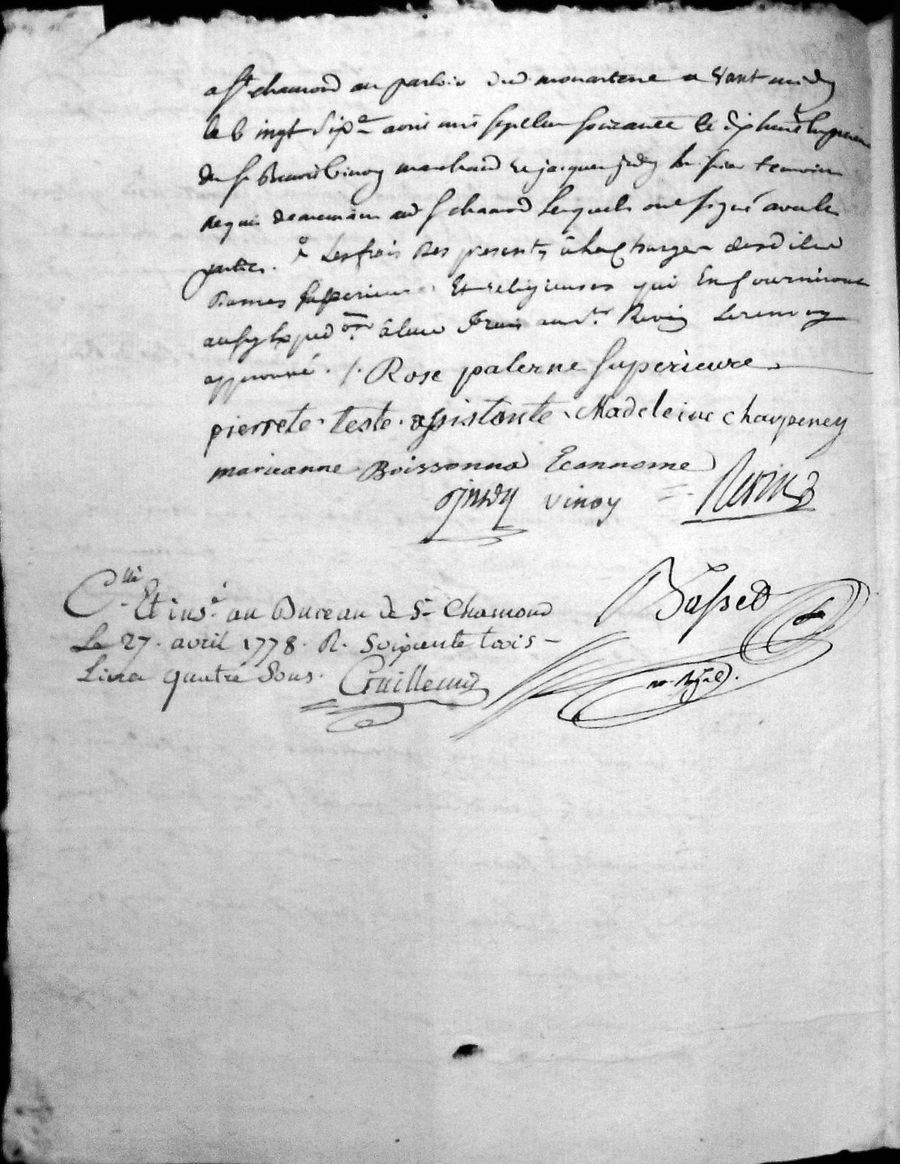 a St chamond au parloir dud monastere avant midy
le vingt six.e avril mil sept cent soixante et dix huit en presence
du Sr Benoit Vinoy marchand et jacques
de aud St chamond lesquels ont signé avec les
parties. les frais des presents à la charge desdites
Dames superieure Et religieuses qui En fourniront
aussy Exped.on à leur frais aud. Sr Revin Le renvoy
approuvé ./. Rose palerne superieure
pierrete teste assistante Madeleine charpeney
marieanne Boissonna Econnome
vinoy Revin
C.lle Et ins.é au Bureau de St Chamond
Le 27 avril 1778 R. Soixante trois
Livres quatre Sous. Guillemin
Basset
no. Royal.